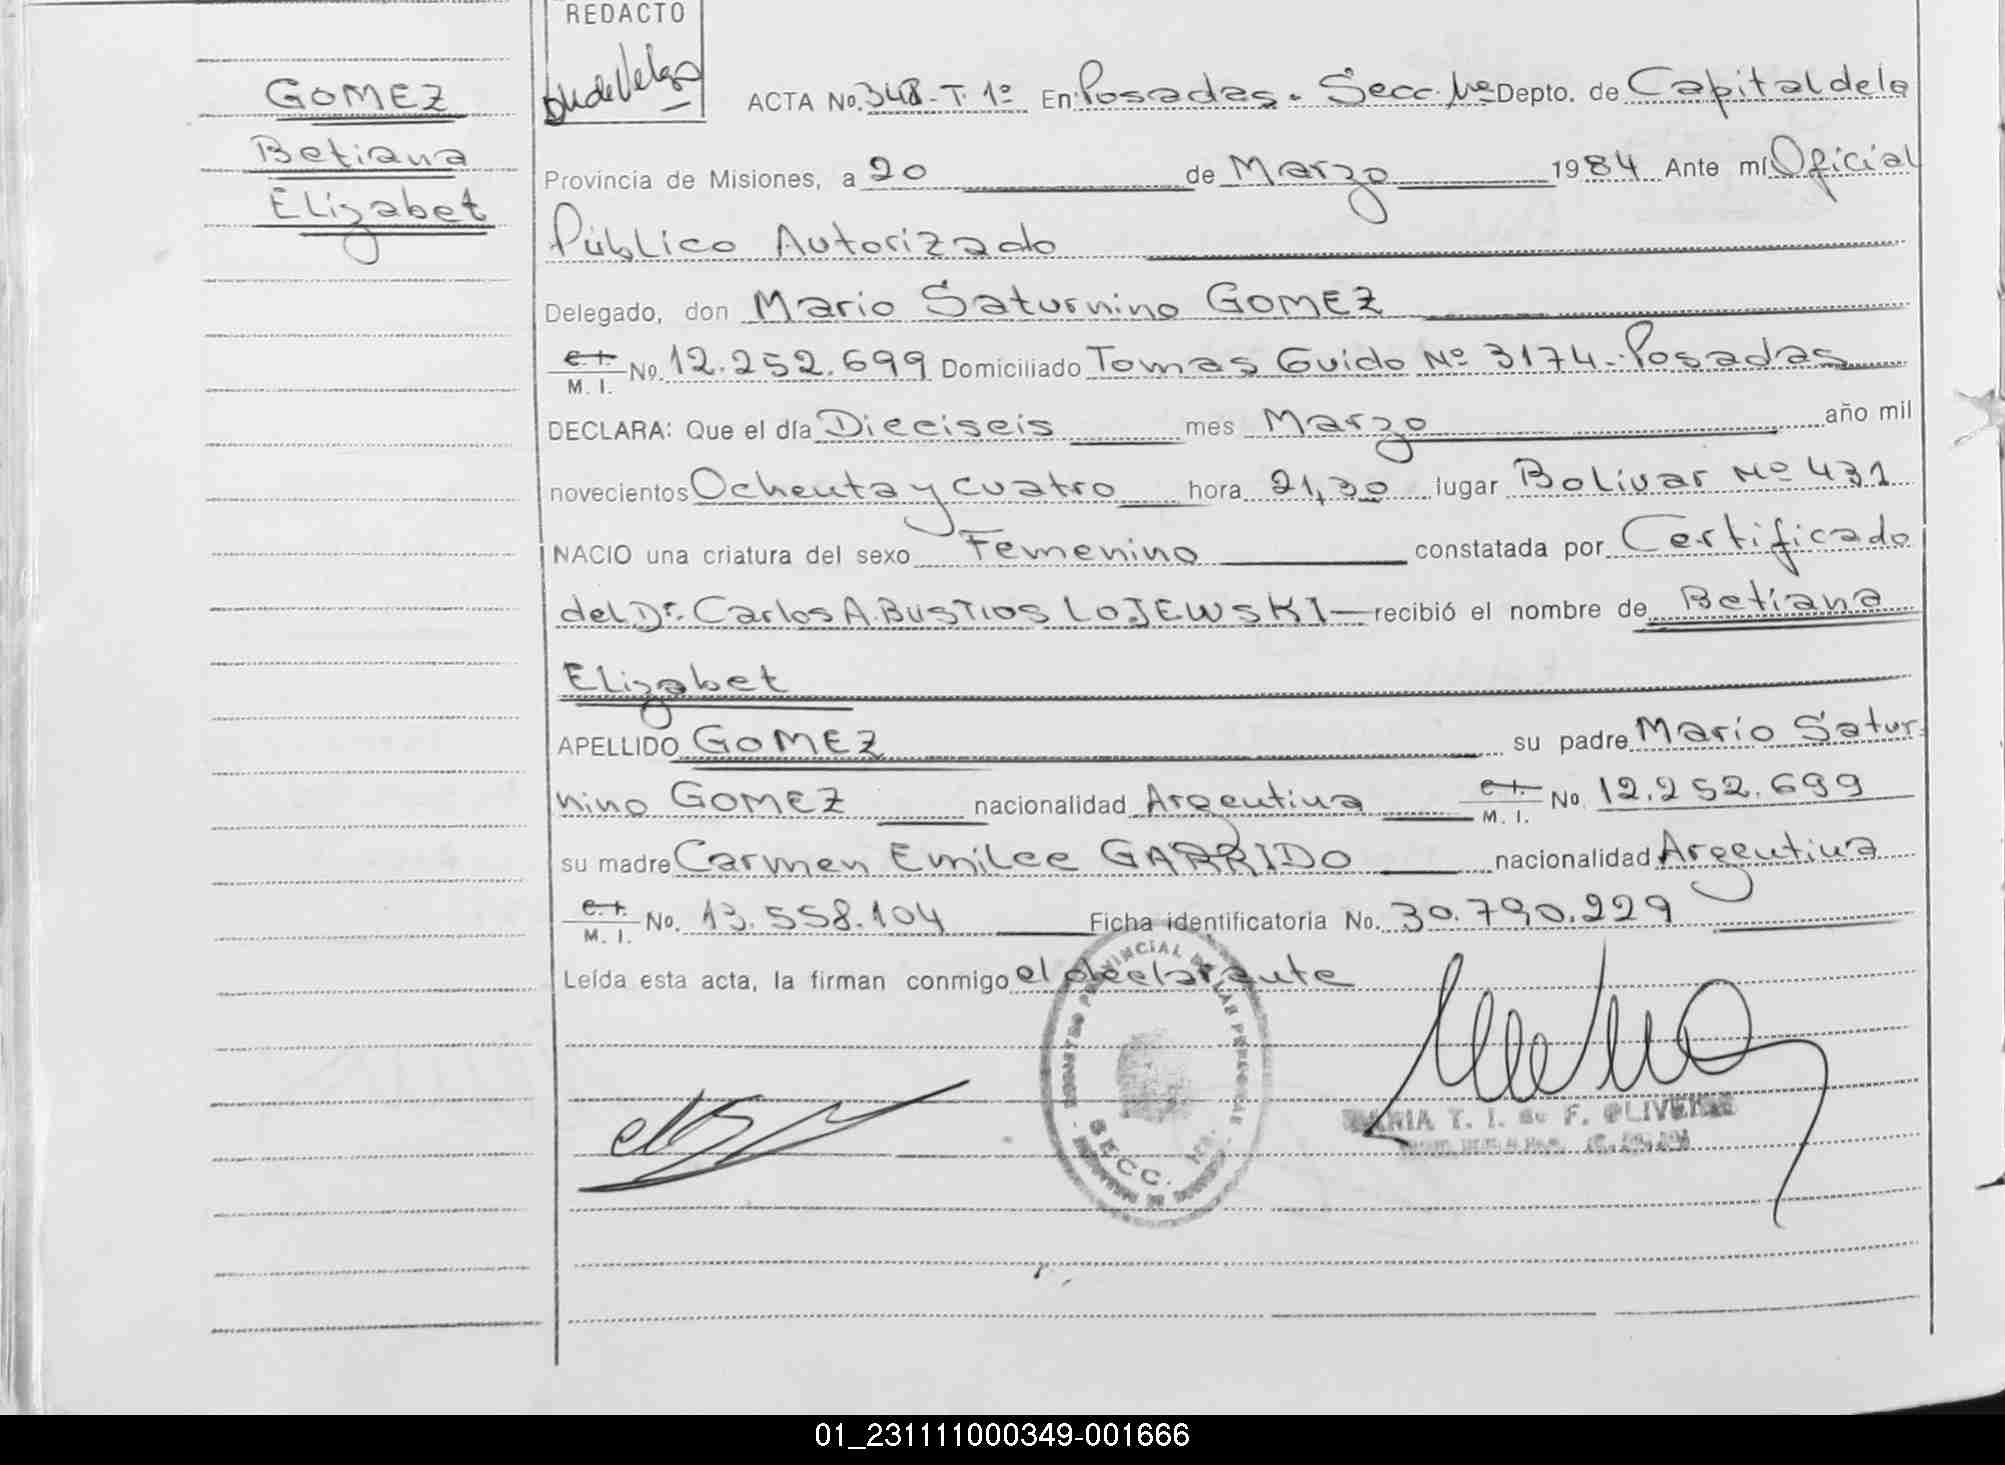 REDACTO
GOMEZ
Betiana
Elizabet
ACTA No. 348-T. 1º En Posadas. Secc. 1º Depto. de Capital de la
Provincia de Misiones, a 20 de Marzo 1984 Ante mí Oficial
Público Autorizado
Delegado, don Mario Saturnino GOMEZ
c.i. M. I. No. 12.252.699 Domiciliado Tomas Guido Nº 3174-Posadas
DECLARA: Que el día Dieciseis mes Marzo año mil
novecientos Ochenta y cuatro hora 21,30 lugar Bolivar Nº 431
NACIO una criatura del sexo Femenino constatada por Certificado
del Dr. Carlos A. BUSTIOS LOJEWSKI recibió el nombre de Betiana
Elizabet
APELLIDO GOMEZ su padre Mario Satur-
nino GOMEZ nacionalidad Argentina c.i. M. I. No. 12.252.699
su madre Carmen Emilce GARRIDO nacionalidad Argentina
c.i. M. I. No. 13.558.104 Ficha identificatoria No. 30.790.229
Leída esta acta, la firman conmigo el declarante
REGISTRO PROVINCIAL DE LAS PERSONAS
SECC. 1ra.
MARIA T. I. de F. OLIVEIRA
01_231111000349-001666